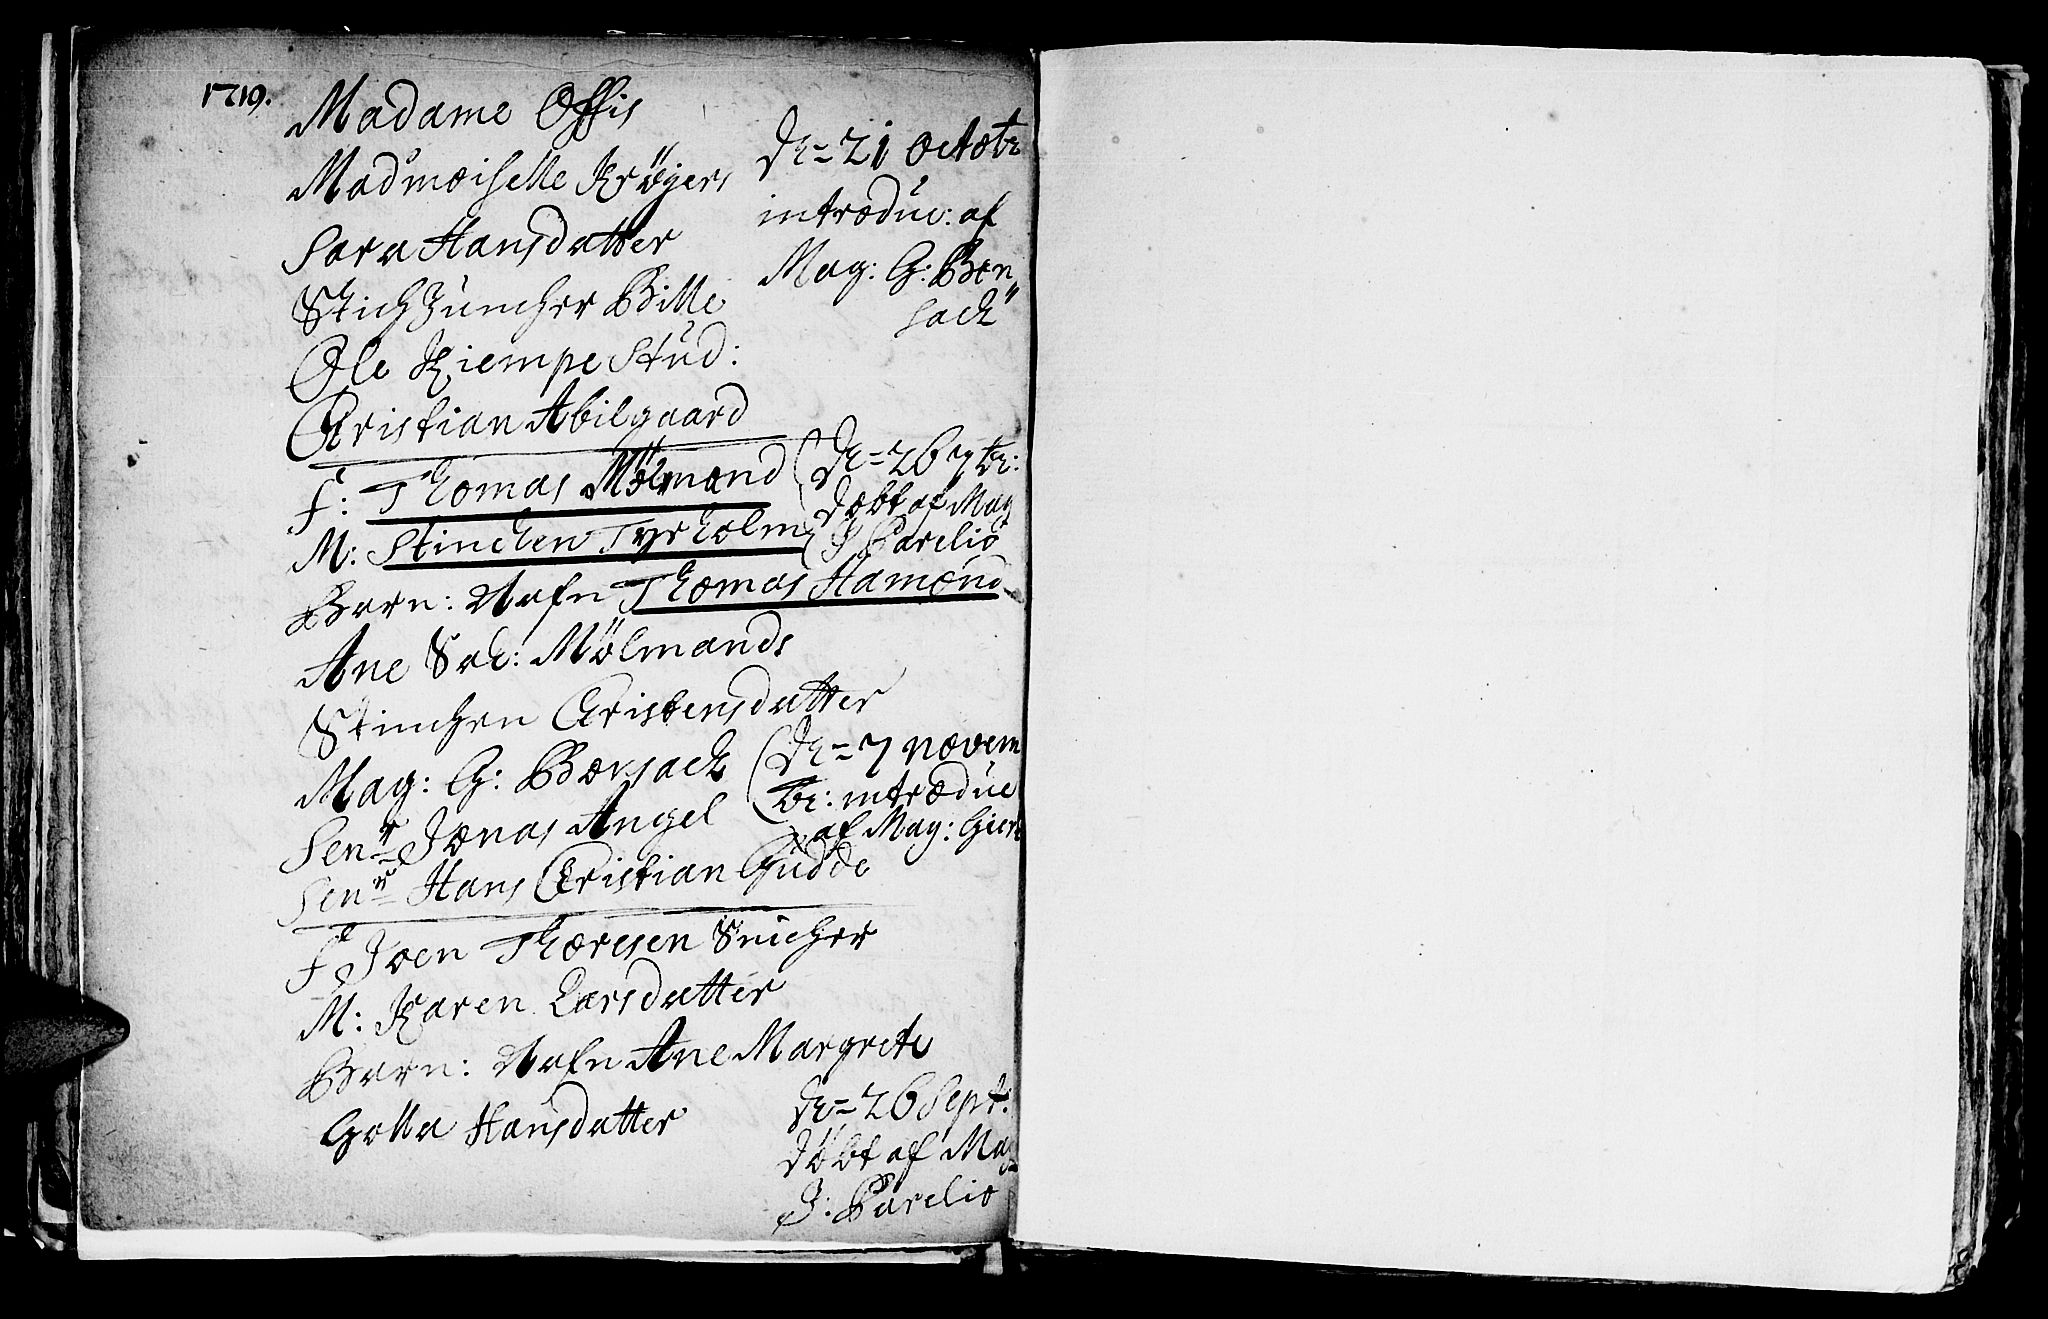 1719.
Madame Offis
Madmoiselle Krøgers
Sara Hansdatter
Stich Juncher Bille
Ole Kiempe Stud:
Christian Abilgaard
d:=21 Octobr
introduc: af
Mag: G: Bor
sack
F: Thomas Mölmand
M: Stinchen Tyrholm
d:=26 7br:
døbt af Mag
J Parelio
Barn: Nafn Thomas Hamond
Ane Sal: Mölmands
Stinchen Christensdatter
Mag: G: Borsack
Senr Jonas Angel
Senr Hans Christian Gudde
d:=7 novem
br: introduc
af Mag: Giert
F Joen Thoresen Snicher
M: Karen Larsdatter
Barn: Nafn Ane Margrete
Golla Hansdatter
d:=26 Sept:
døbt af Mag
J: Parelio